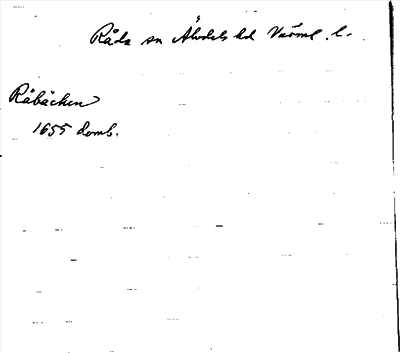 Råda sn Älvdals hd Värml. l.
Råbäcken
1655 domb.